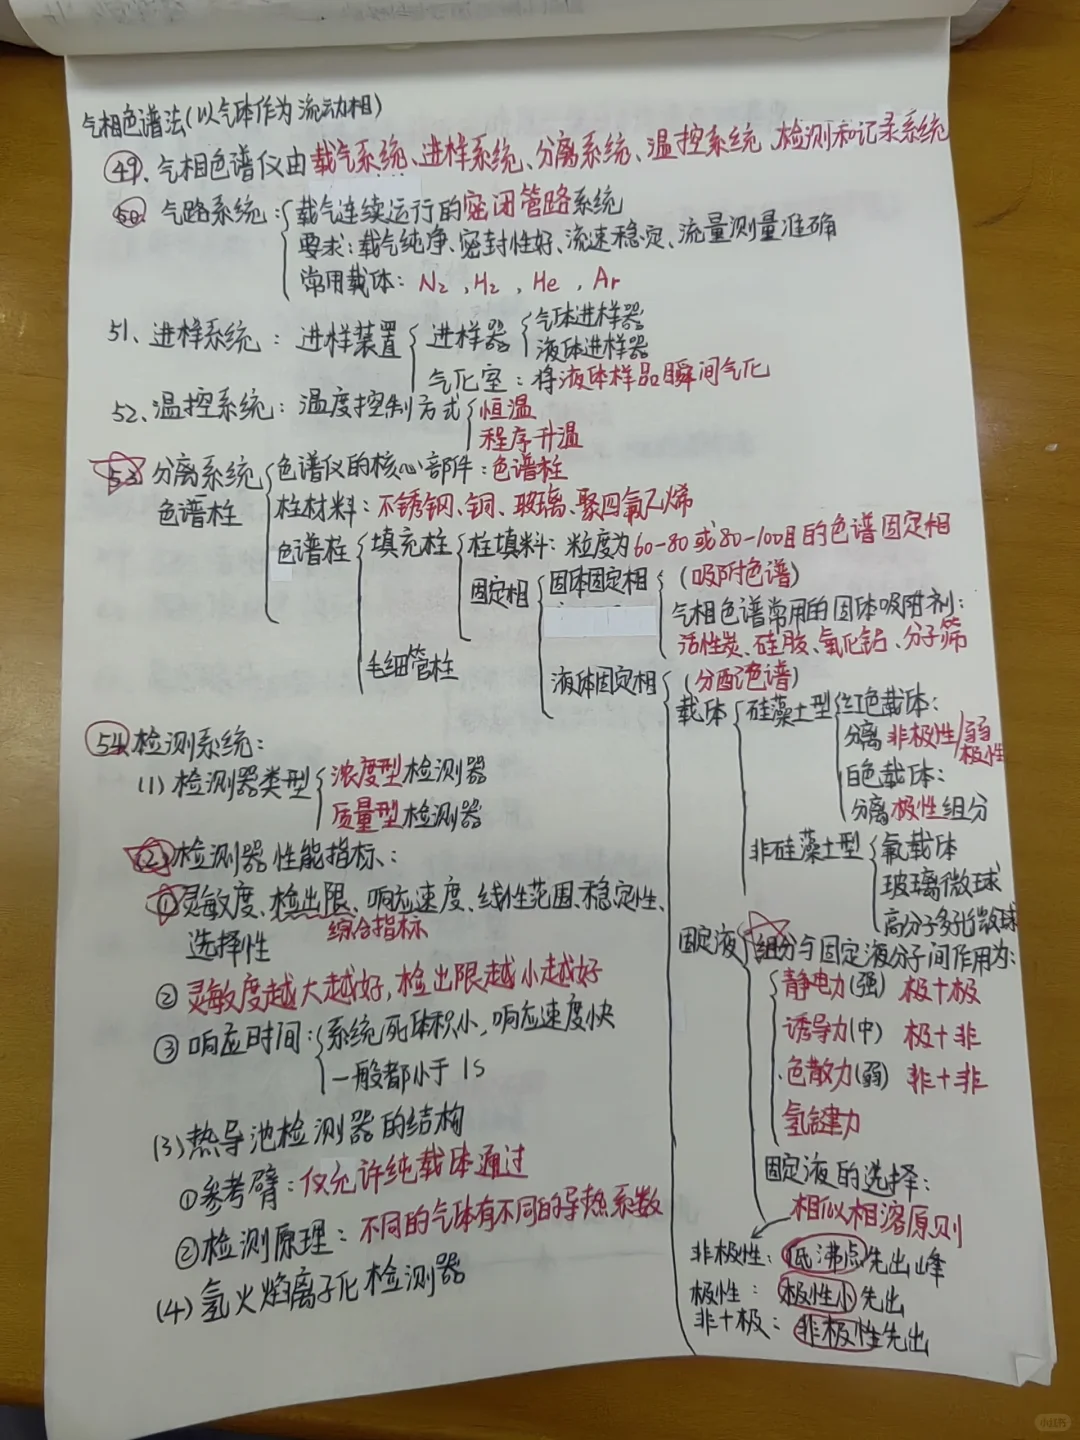 气相色谱法(以气体作为流动相)
49、气相色谱仪由载气系统、进样系统、分离系统、温控系统、检测和记录系统
50、气路系统:载气连续运行的密闭管路系统
要求:载气纯净、密封性好、流速稳定、流量测量准确
常用载体:N₂,H₂,He,Ar
51、进样系统:进样装置 进样器 气体进样器
液体进样器
气化室:将液体样品瞬间气化
52、温控系统:温度控制方式 恒温
程序升温
53 分离系统 色谱仪的核心部件:色谱柱
色谱柱 柱材料:不锈钢、铜、玻璃、聚四氟乙烯
色谱柱 填充柱 柱填料:粒度为60-80或80-100目的色谱固定相
固定相 固体固定相 (吸附色谱)
气相色谱常用的固体吸附剂:
活性炭、硅胶、氧化铝、分子筛
毛细管柱
液体固定相 (分配色谱)
载体 硅藻土型 红色载体:
分离非极性/弱极性
白色载体:
分离极性组分
非硅藻土型 氟载体
玻璃微球
高分子多孔微球
固定液 组分与固定液分子间作用为:
静电力(强) 极+极
诱导力(中) 极+非
色散力(弱) 非+非
氢键力
固定液的选择:
相似相溶原则
非极性:低沸点先出峰
极性:极性小先出
非+极:非极性先出
54 检测系统:
(1)检测器类型 浓度型检测器
质量型检测器
(2)检测器性能指标:
①灵敏度、检出限、响应速度、线性范围、稳定性、
综合指标
选择性
②灵敏度越大越好,检出限越小越好
③响应时间:系统死体积小,响应速度快
一般都小于1s
(3)热导池检测器的结构
①参考臂:仅允许纯载体通过
②检测原理:不同的气体有不同的导热系数
(4)氢火焰离子化检测器
小红书